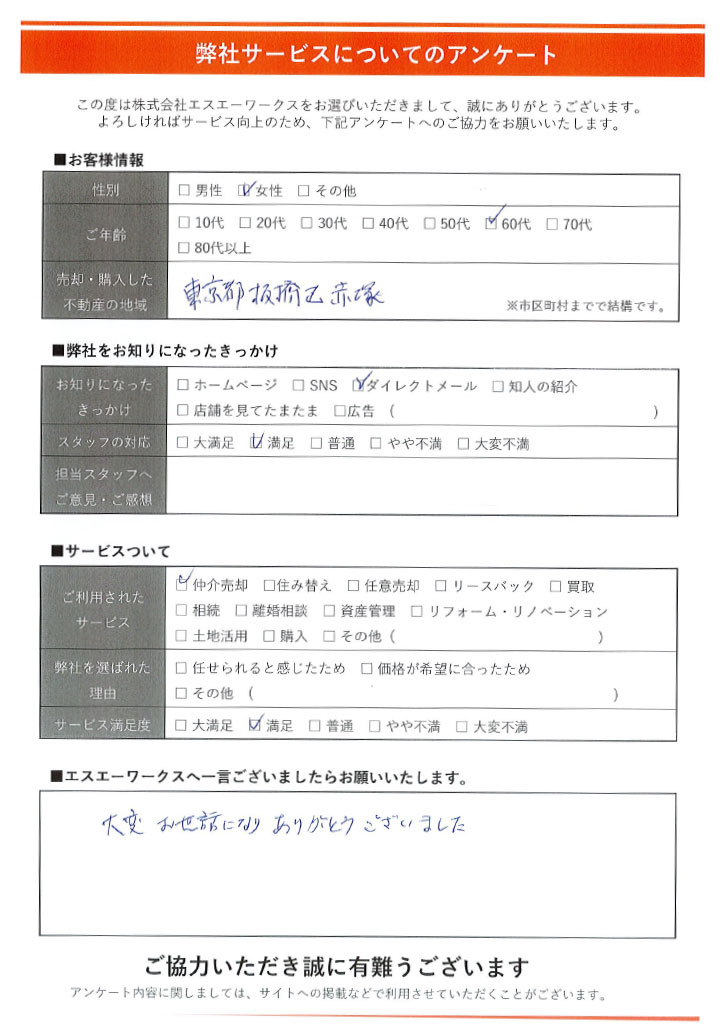 弊社サービスについてのアンケート
この度は株式会社エスエーワークスをお選びいただきまして、誠にありがとうございます。
よろしければサービス向上のため、下記アンケートへのご協力をお願いいたします。
■お客様情報
性別 □ 男性 ☑ 女性 □ その他
ご年齢 □ 10代 □ 20代 □ 30代 □ 40代 □ 50代 ☑ 60代 □ 70代
□ 80代以上
売却・購入した
不動産の地域 東京都板橋区赤塚 ※市区町村までで結構です。
■弊社をお知りになったきっかけ
お知りになった
きっかけ □ ホームページ □ SNS ☑ ダイレクトメール □ 知人の紹介
□ 店舗を見てたまたま □広告 ( )
スタッフの対応 □ 大満足 ☑ 満足 □ 普通 □ やや不満 □ 大変不満
担当スタッフへ
ご意見・ご感想
■サービスついて
ご利用された
サービス ☑ 仲介売却 □住み替え □ 任意売却 □ リースバック □ 買取
□ 相続 □ 離婚相談 □ 資産管理 □ リフォーム・リノベーション
□ 土地活用 □ 購入 □ その他 ( )
弊社を選ばれた
理由 □ 任せられると感じたため □ 価格が希望に合ったため
□ その他 ( )
サービス満足度 □ 大満足 ☑ 満足 □ 普通 □ やや不満 □ 大変不満
■エスエーワークスへ一言ございましたらお願いいたします。
大変 お世話になり ありがとう ございました
ご協力いただき誠に有難うございます
アンケート内容に関しましては、サイトへの掲載などで利用させていただくことがございます。